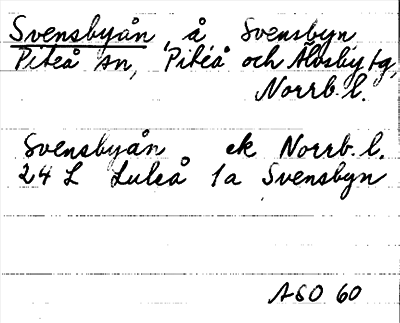 Svensbyån, å Svensbyn
Piteå sn, Piteå och Älvsby tg,
Norrb. l.
Svensbyån ek Norrb. l.
24 L Luleå 1a Svensbyn
ASO 60